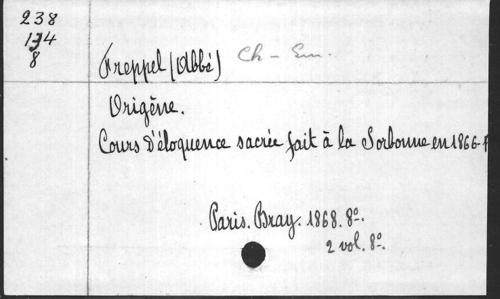 238
8
Freppel (Abbé) Ch - Em.
Origène.
Cours d'éloquence sacrée fait à la Sorbonne en 1866-
Paris. Bray. 1868. 8º.
2 vol. 8º.